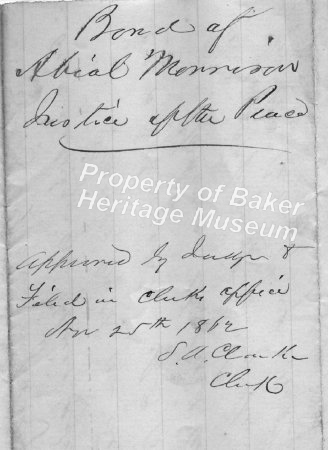 Bond of
Abial Morrison
Justice of the Peace
Property of Baker
Heritage Museum
approved by Judge &
Filed in clerks office
Nov 25th 1862
S. A. Clarke
Clerk